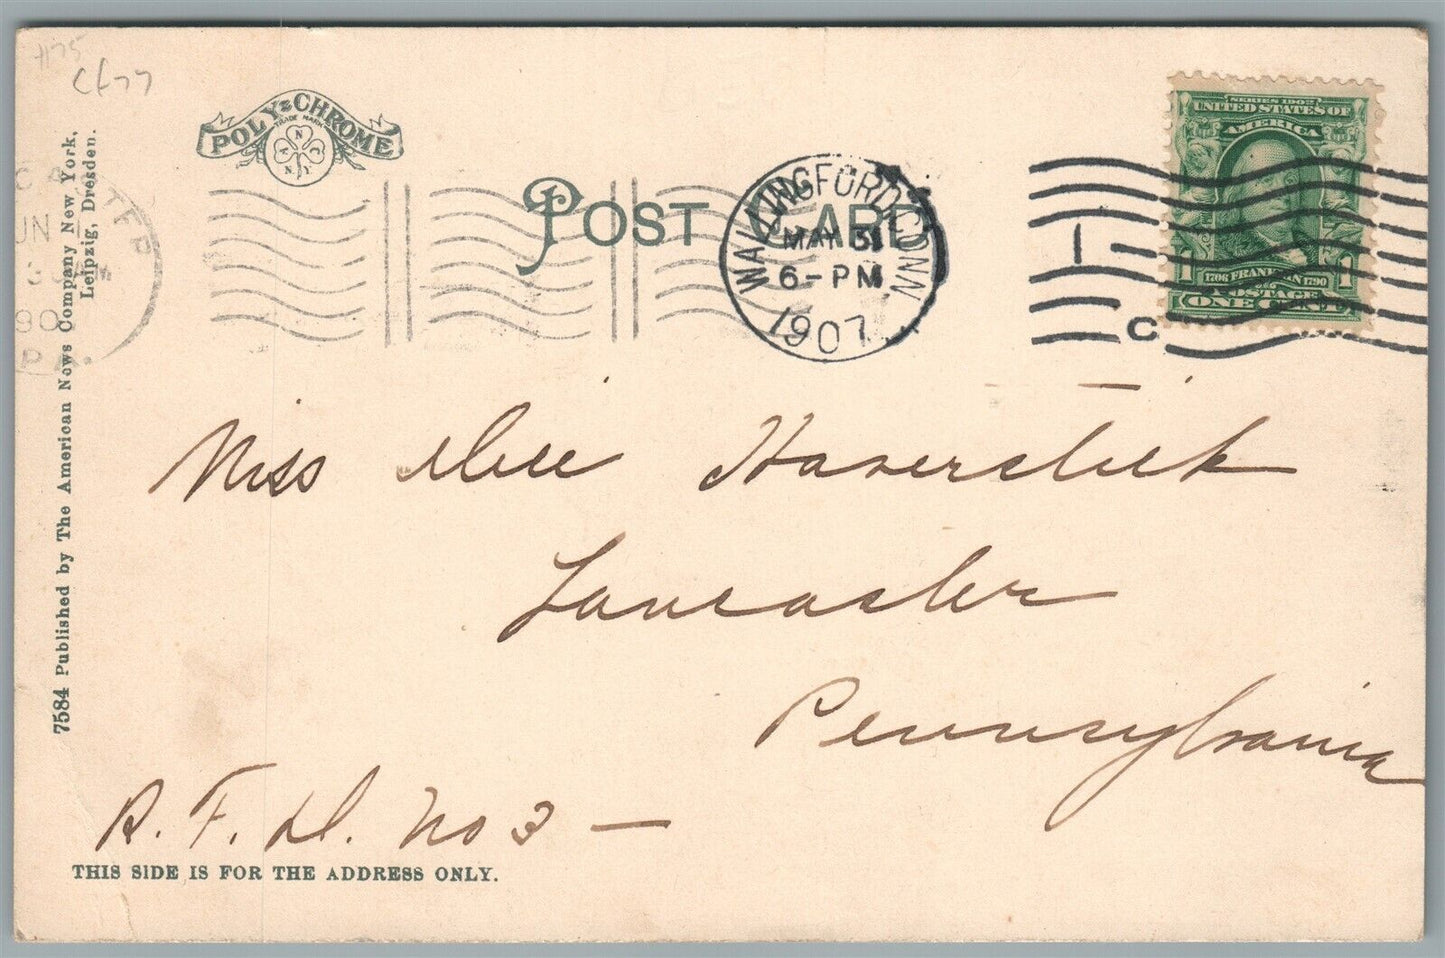 #175
Cf77
POLY-CHROME
TRADE MARK
POST CARD
WALLINGFORD, CONN
MAY 31
6-PM
1907
1
C
SERIES 1902
UNITED STATES OF
AMERICA
1706 FRANKLIN 1790
POSTAGE
1 ONE CENT 1
7584 Published by The American News Company New York,
Leipzig, Dresden.
Miss Haverstick
Lancaster
Pennsylvania
R. F. D. No 3 —
THIS SIDE IS FOR THE ADDRESS ONLY.